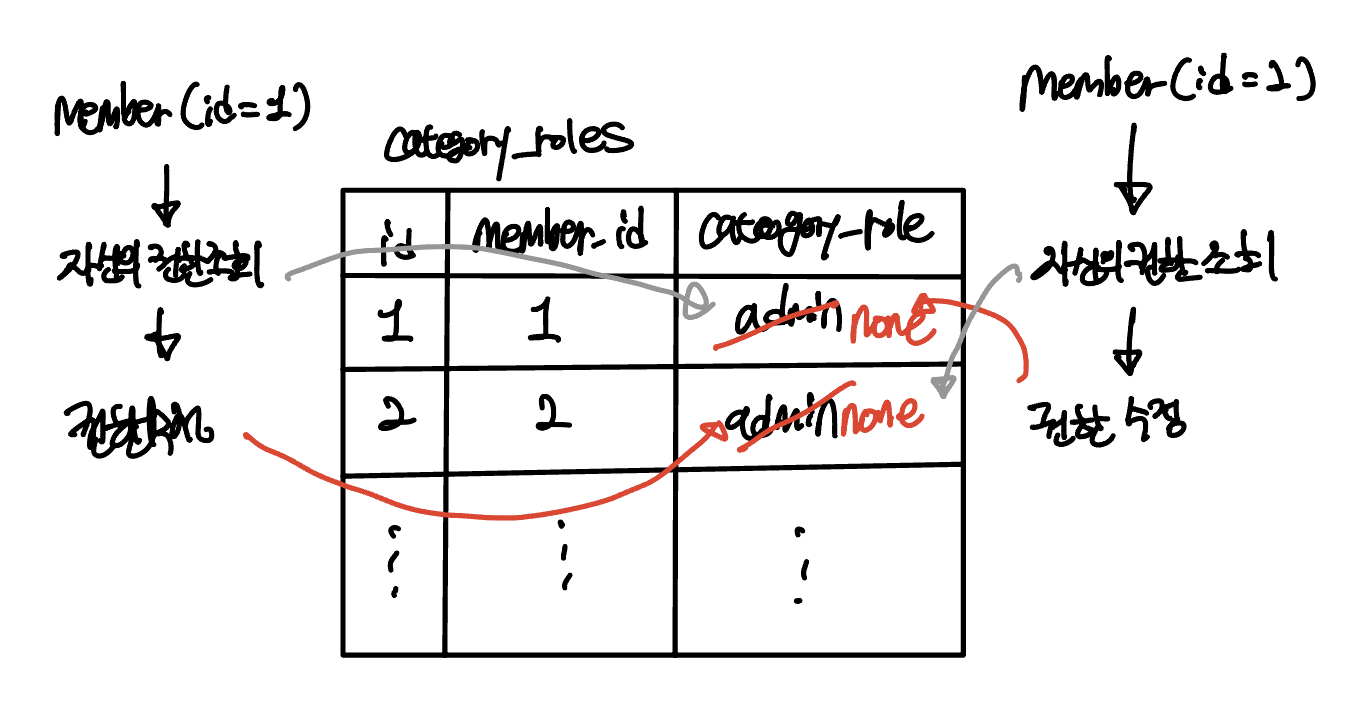 Member(id=1)
자신의 권한 조회
category_roles
id member_id category_role
1 1 admin none
2 2 admin none
Member(id=2)
자신의 권한 조회
권한 수정